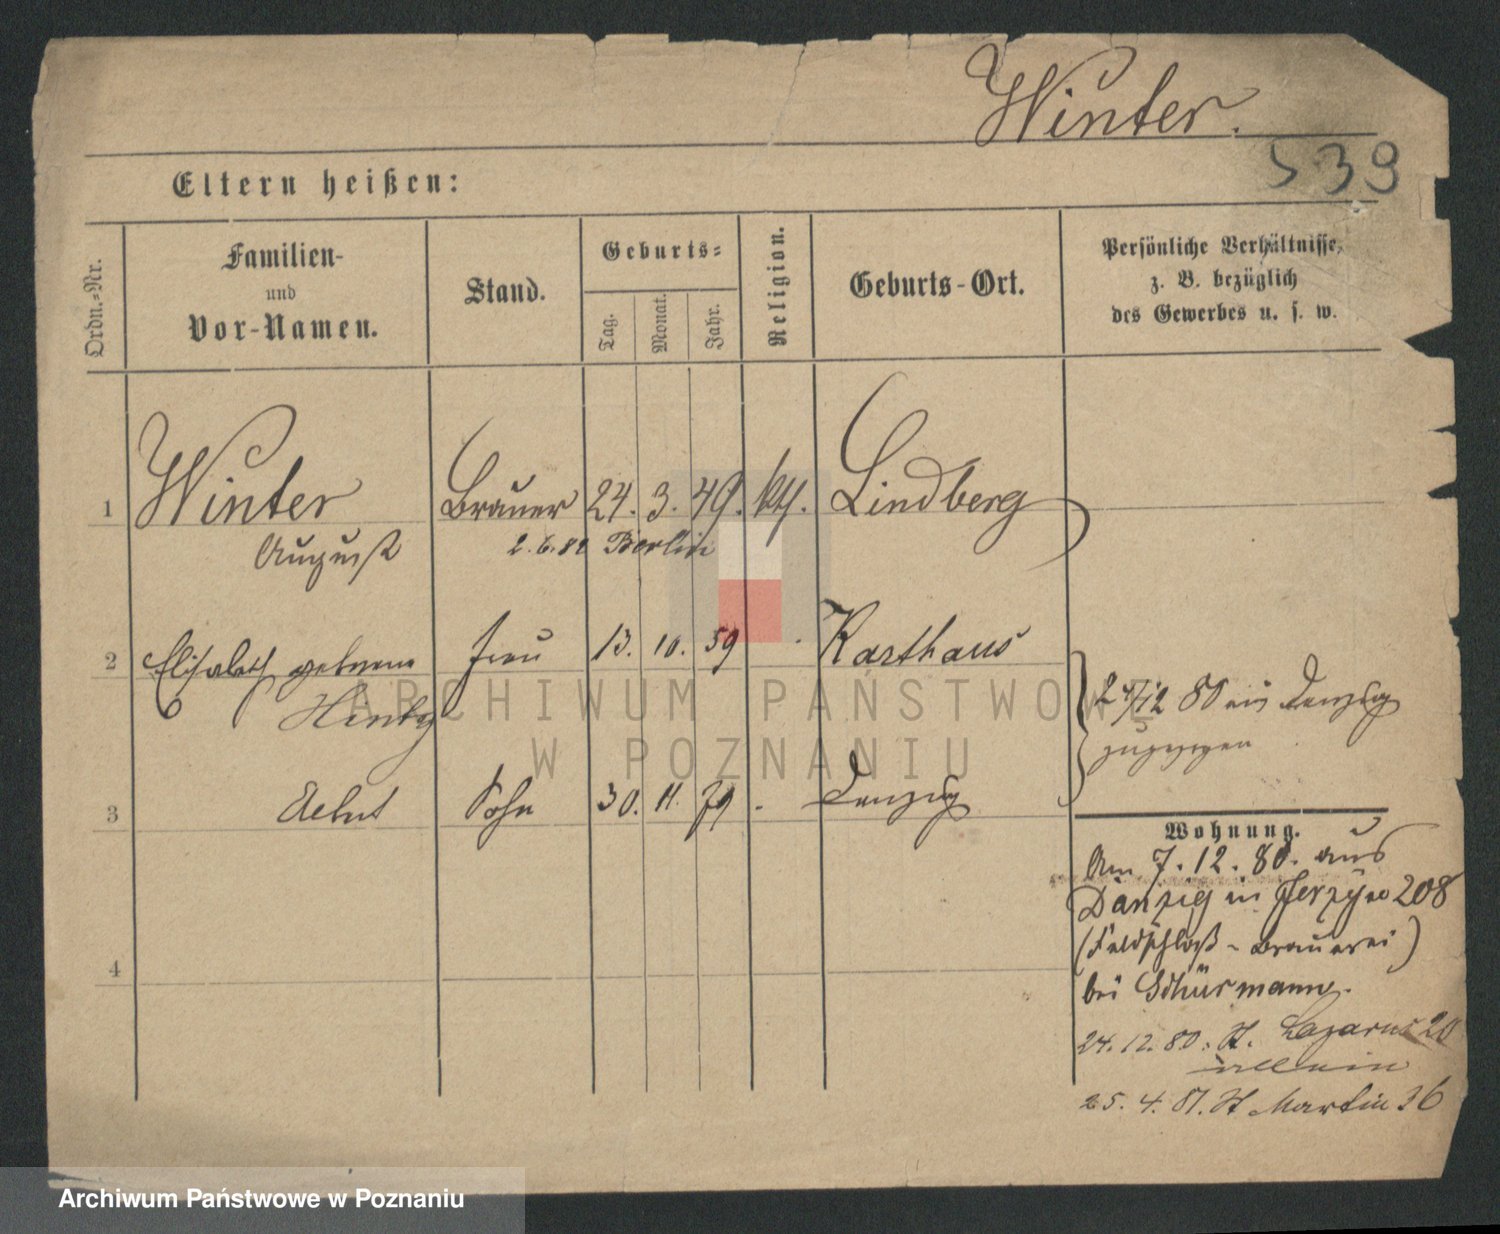 Winter.
539
Eltern heißen:
Ordn.-Nr.
Familien-
und
Vor-Namen.
Stand.
Geburts-
Tag.
Monat.
Jahr.
Religion.
Geburts-Ort.
Persönliche Verhältnisse,
z. B. bezüglich
des Gewerbes u. s. w.
1 Winter Brauer 24. 3. 49. kth. Lindberg
August 2.6.82 Berlin
2 Elisabeth geborene Frau 13. 10. 59 Karthaus
3 Sohn 30. 11. 79 Danzig
24/12 80 Danzig
zugezogen
Wohnung.
Am 7.12.80. aus
Danzig in Jerzyce 208
(Feldschloß-Brauerei)
bei Schürmann.
24.12.80. St. Lazarus 20
allein
25.4.81. St Martin 36
4
ARCHIWUM PAŃSTWOWE
W POZNANIU
Archiwum Państwowe w Poznaniu